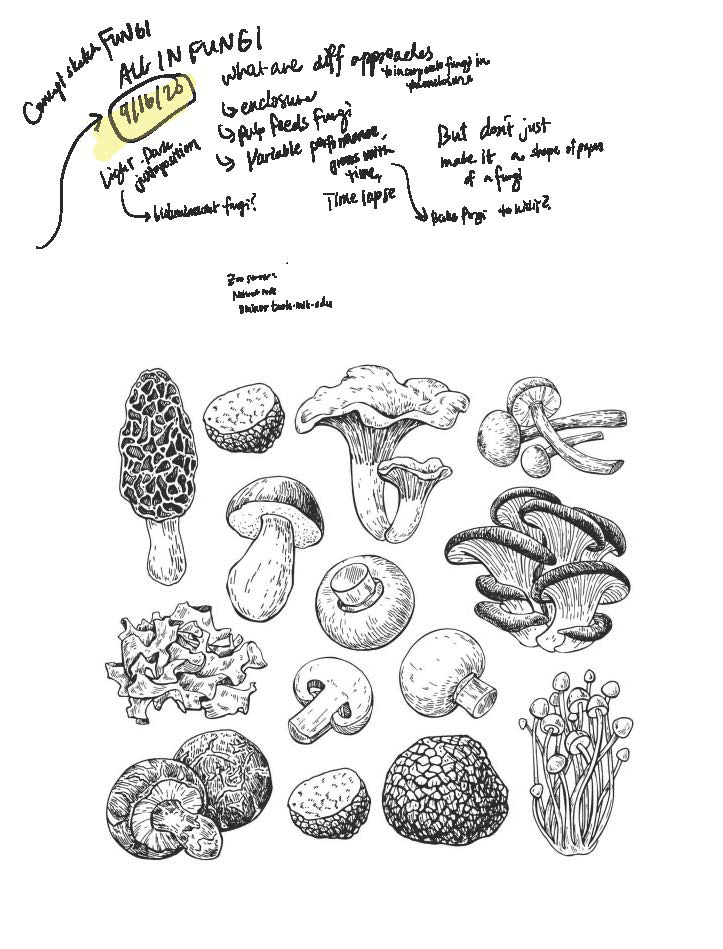 Concept sketch FUNGI
ALL IN FUNGI
9/16/20
Light-Dark
juxtaposition
↳ bioluminescent fungi?
what are diff approaches
to incorporate fungi in
enclosure
↳ enclosure
↳ pulp feeds fungi
↳ Variable performance,
grows with
time,
Time lapse
But don't just
make it a shape of paper
of a fungi
↳ Bake fungi to kill it?